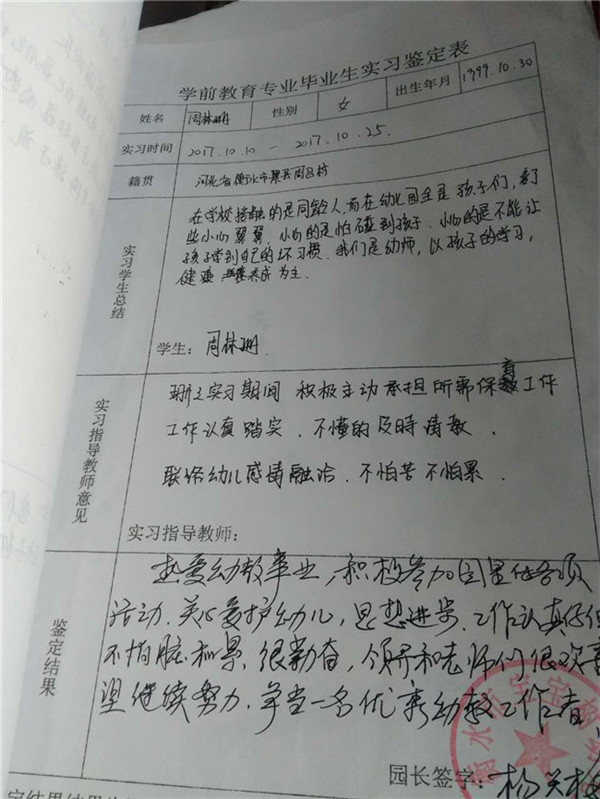 学前教育专业毕业生实习鉴定表
姓名 周林珊 性别 女 出生年月 1999.10.30
实习时间 2017.10.10 — 2017.10.25.
籍贯 河北省衡水市景县周吕村
实习学生总结
在学校接触的是同龄人,而在幼儿园全是孩子们,多了
些小心翼翼,小心的是怕碰到孩子,小心的是不能让
孩子学到自己的坏习惯。我们是幼师,以孩子的学习,
健康 养成为主.
学生: 周林珊
实习指导教师意见
珊之实习期间 积极主动承担所需保育工作
工作认真踏实. 不懂的及時请教.
联络幼儿感情融洽. 不怕苦不怕累.
实习指导教师:
鉴定结果
热爱幼教事业,积极参加园里任务各项
活动.关心爱护幼儿,思想进步.工作认真仔细
不怕脏和累.很勤奋,领导和老师们很欢喜
望继续努力.争当一名优秀幼教工作者,
园长签字: